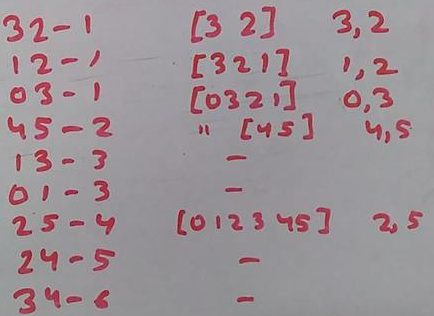 32-1 [3 2] 3,2
12-1 [3 2 1] 1,2
03-1 [0 3 2 1] 0,3
45-2 " [4 5] 4,5
13-3 -
01-3 -
25-4 [0 1 2 3 4 5] 2,5
24-5 -
34-6 -